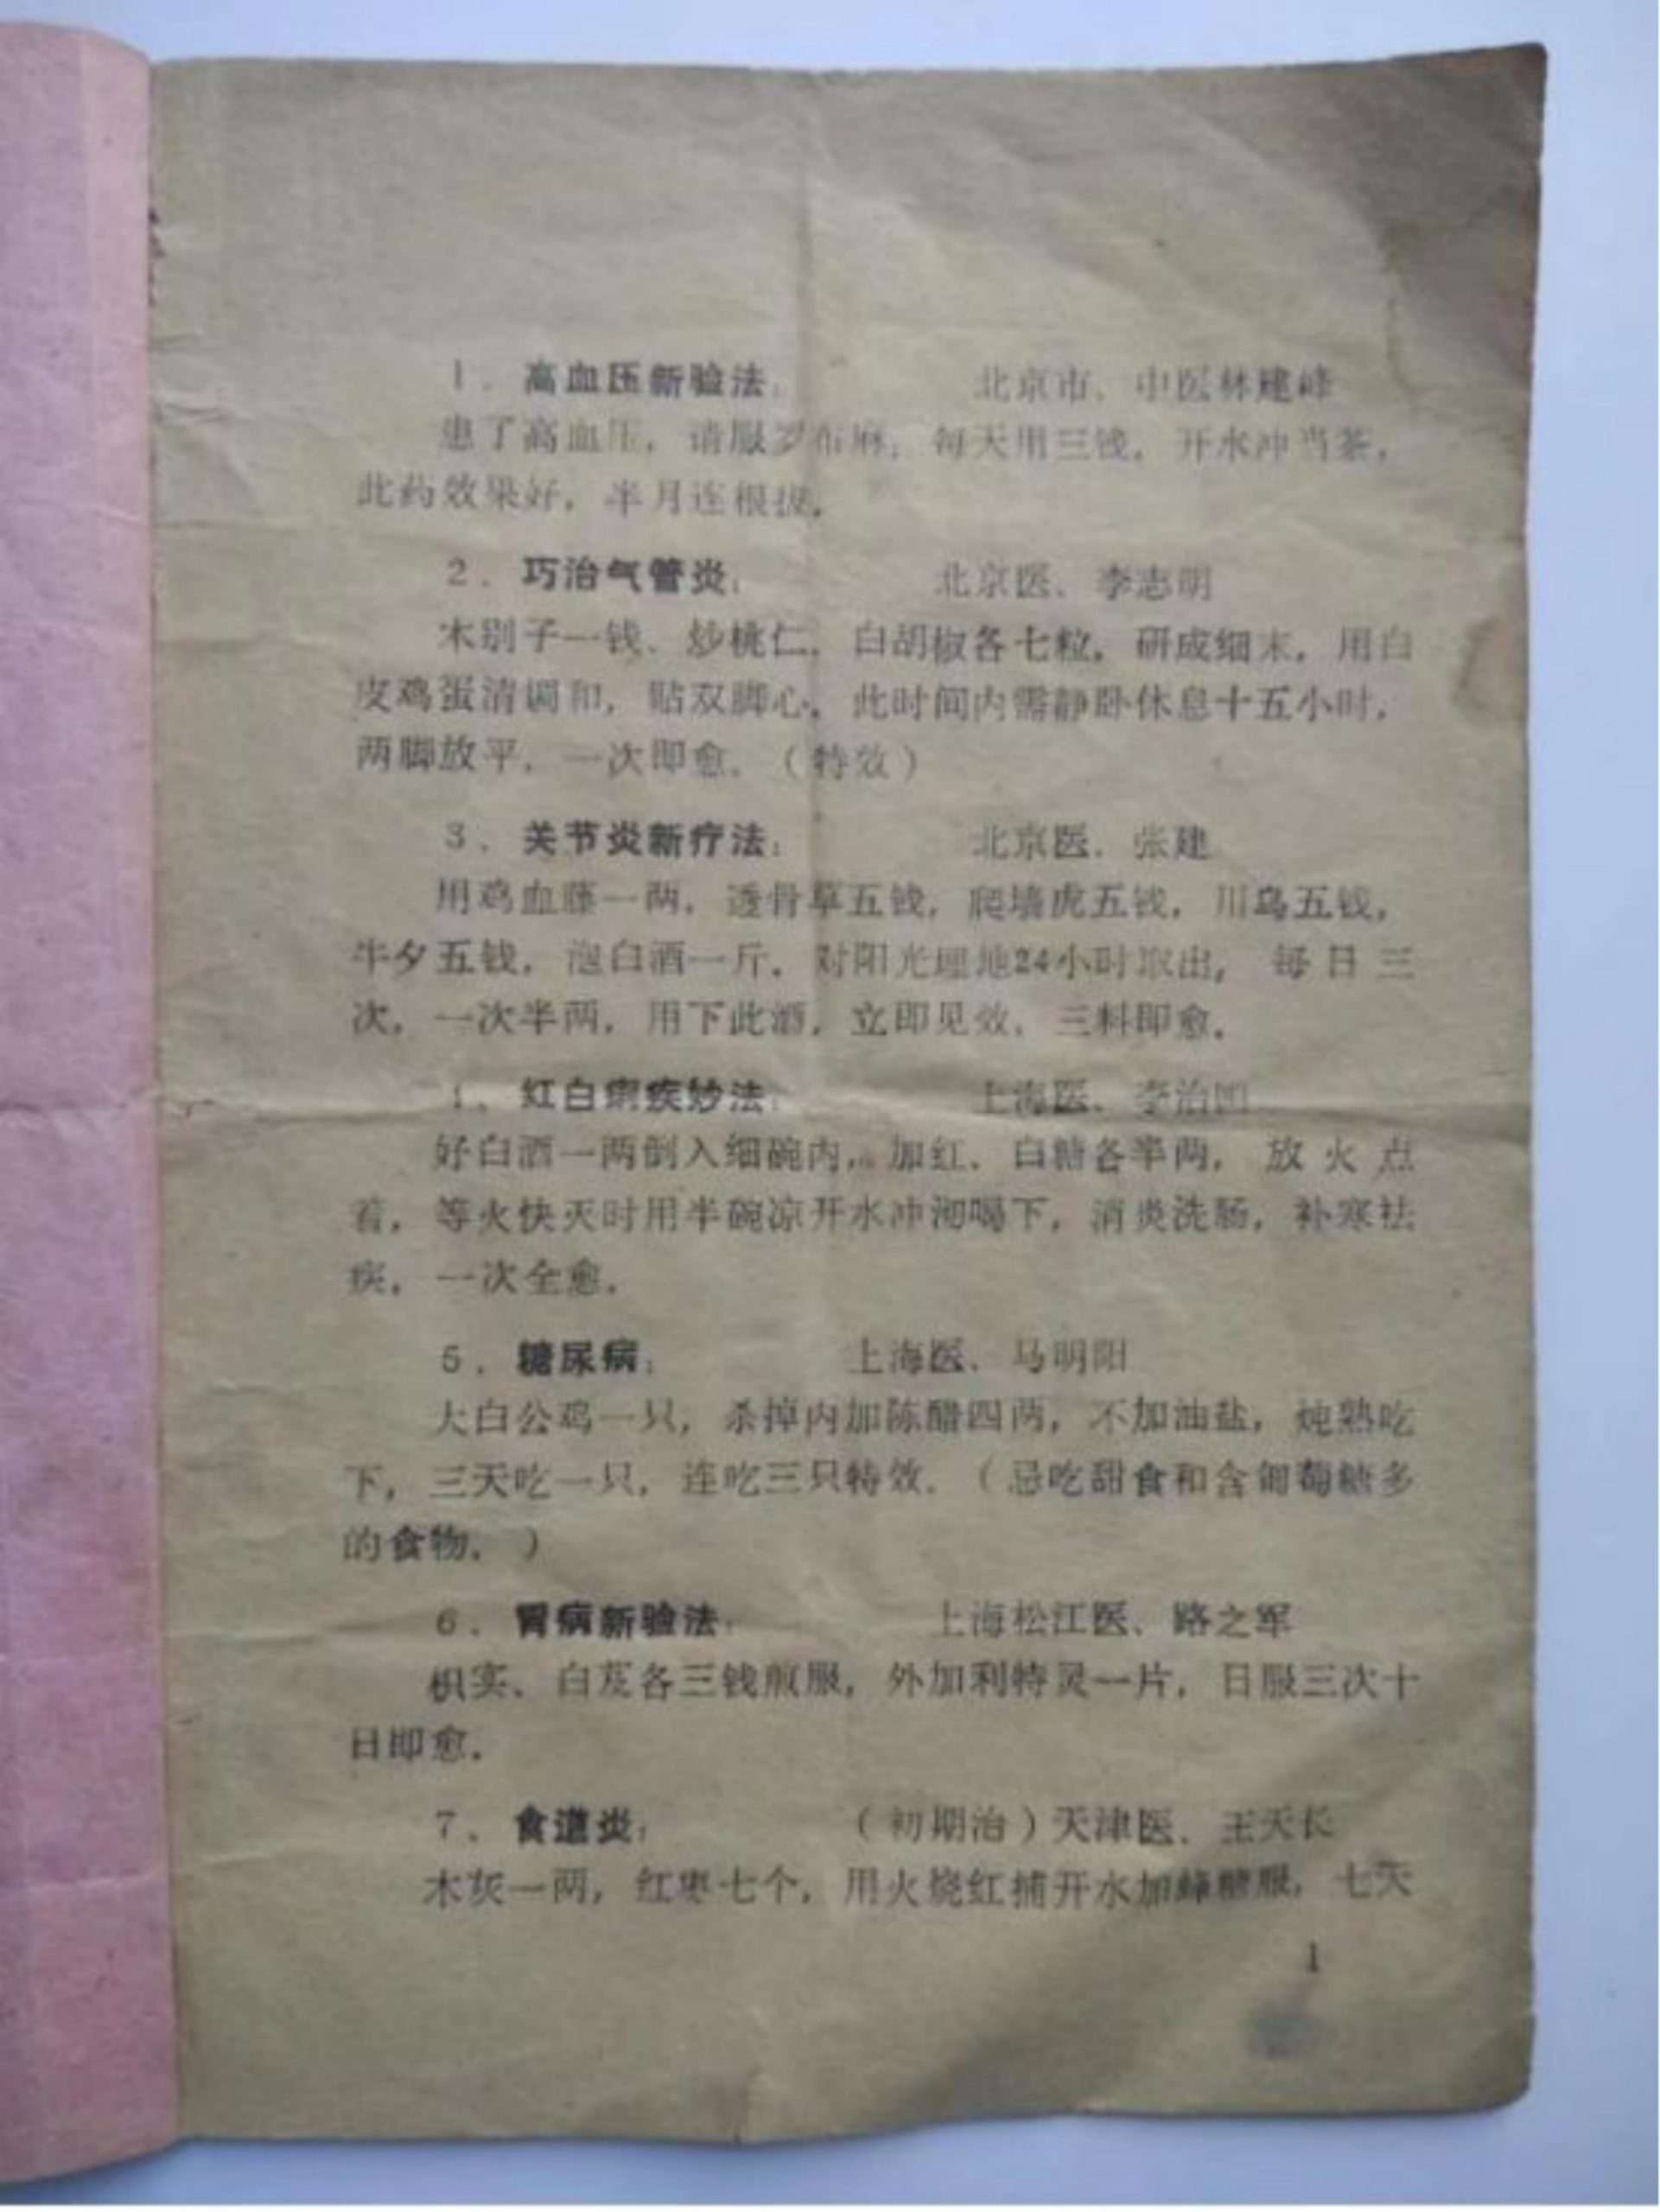 1．高血压新验法： 北京市、中医林建峰
患了高血压，请服罗布麻，每天用三钱，开水冲当茶，
此药效果好，半月连根拔。
2．巧治气管炎： 北京医、李志明
木别子一钱、炒桃仁、白胡椒各七粒，研成细末，用白
皮鸡蛋清调和，贴双脚心，此时间内需静卧休息十五小时，
两脚放平，一次即愈。（特效）
3．关节炎新疗法： 北京医、张建
用鸡血藤一两，透骨草五钱，爬墙虎五钱，川乌五钱，
牛夕五钱，泡白酒一斤，对阳光埋地24小时取出，每日三
次，一次半两，用下此酒，立即见效，三料即愈。
4、红白痢疾妙法： 上海医、李治
好白酒一两倒入细碗内，加红、白糖各半两，放火点
着，等火快灭时用半碗凉开水冲沏喝下，消炎洗肠，补寒祛
疾，一次全愈。
5．糖尿病： 上海医、马明阳
大白公鸡一只，杀掉内加陈醋四两，不加油盐，炖熟吃
下，三天吃一只，连吃三只特效。（忌吃甜食和含葡萄糖多
的食物。）
6．胃病新验法： 上海松江医、路之军
枳实、白芨各三钱煎服，外加利特灵一片，日服三次十
日即愈。
7、食道炎： （初期治）天津医、王天长
木灰一两，红枣七个，用火烧红捕开水加蜂糖服，七天
1